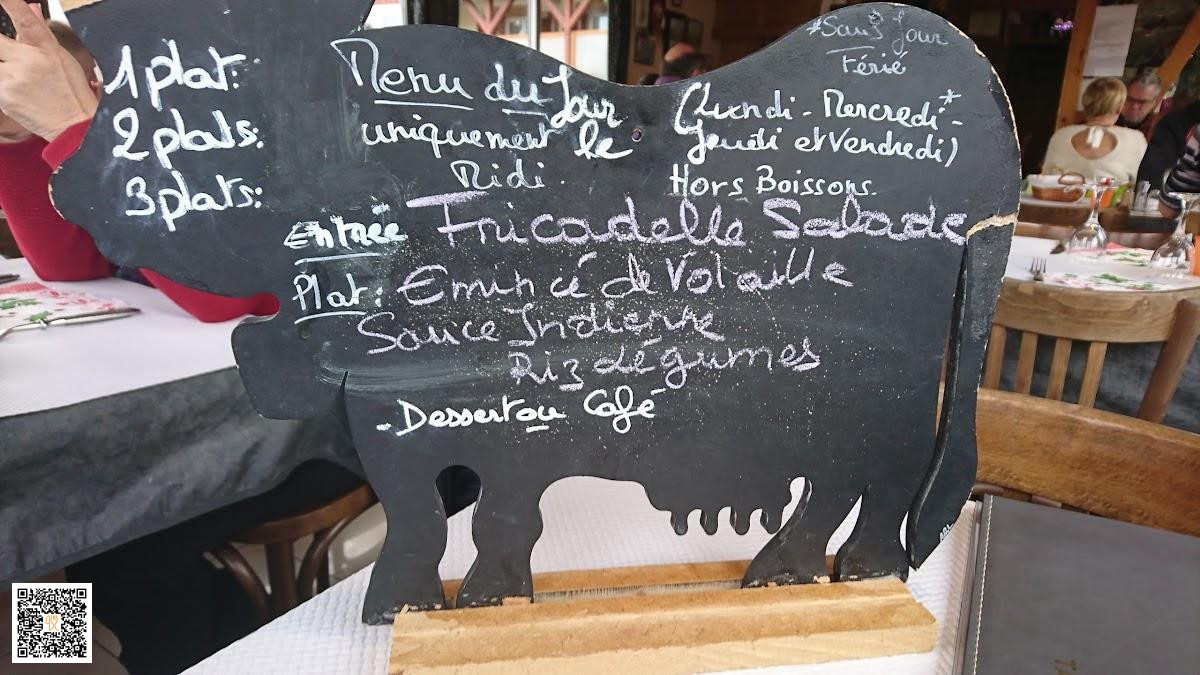 1 plat:
2 plats:
3 plats:
Menu du Jour
uniquement le
Midi.
*Sauf Jour
Férié
(Lundi - Mercredi* -
Jeudi et Vendredi)
Hors Boissons.
Entrée Fricadelle Salade
Plat: Emincé de Volaille
Sauce Indienne
Riz Légumes
- Dessert ou Café